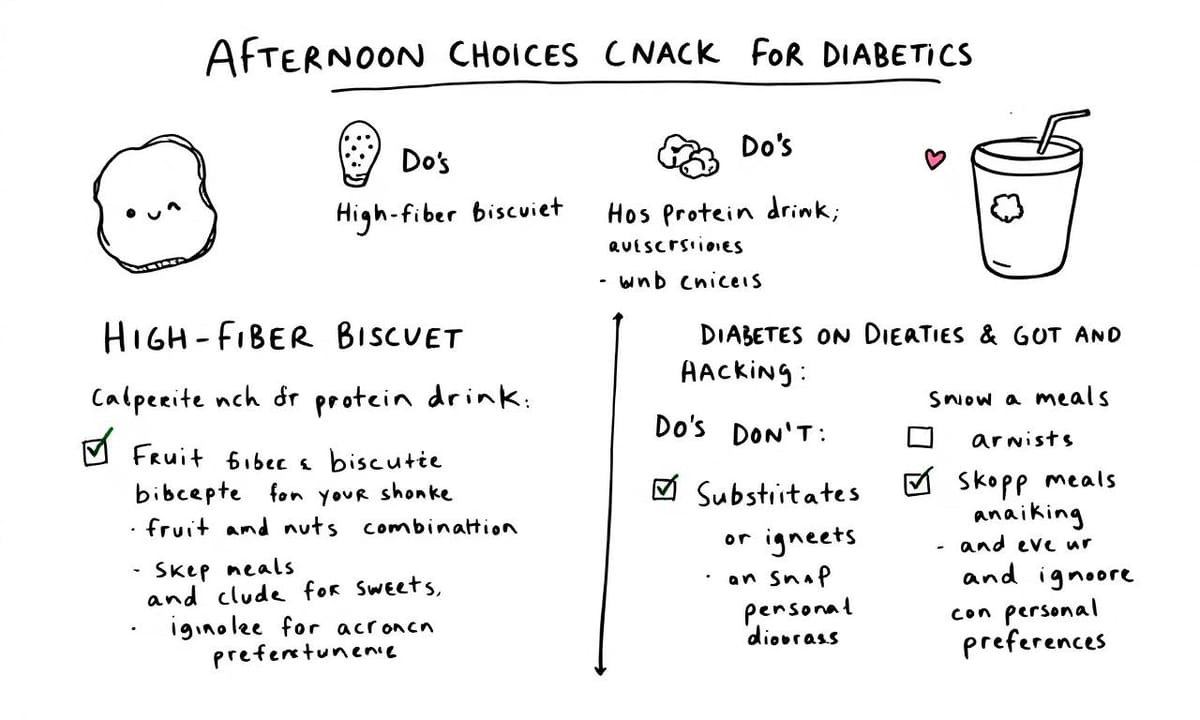 AFTERNOON CHOICES CNACK FOR DIABETICS
Do's
High-fiber biscuiet
Do's
Hos protein drink;
- wnb cniceis
HIGH-FIBER BISCUET
Calpexite nch dr protein drink:
Fruit fiber & biscutie
bibcepte fon your shonke
· fruit amd nuts combinattion
- Skep meals
and clude for sweets,
· iginolee for acroncn
DIABETES ON DIEATIES & GOT AND
HACKING:
Do's DON'T:
Substritates
or igneets
· an snap
personal
Snow a meals
arnists
Skopp meals
anaiking
- and eve ur
and ignoore
con personal
preferences